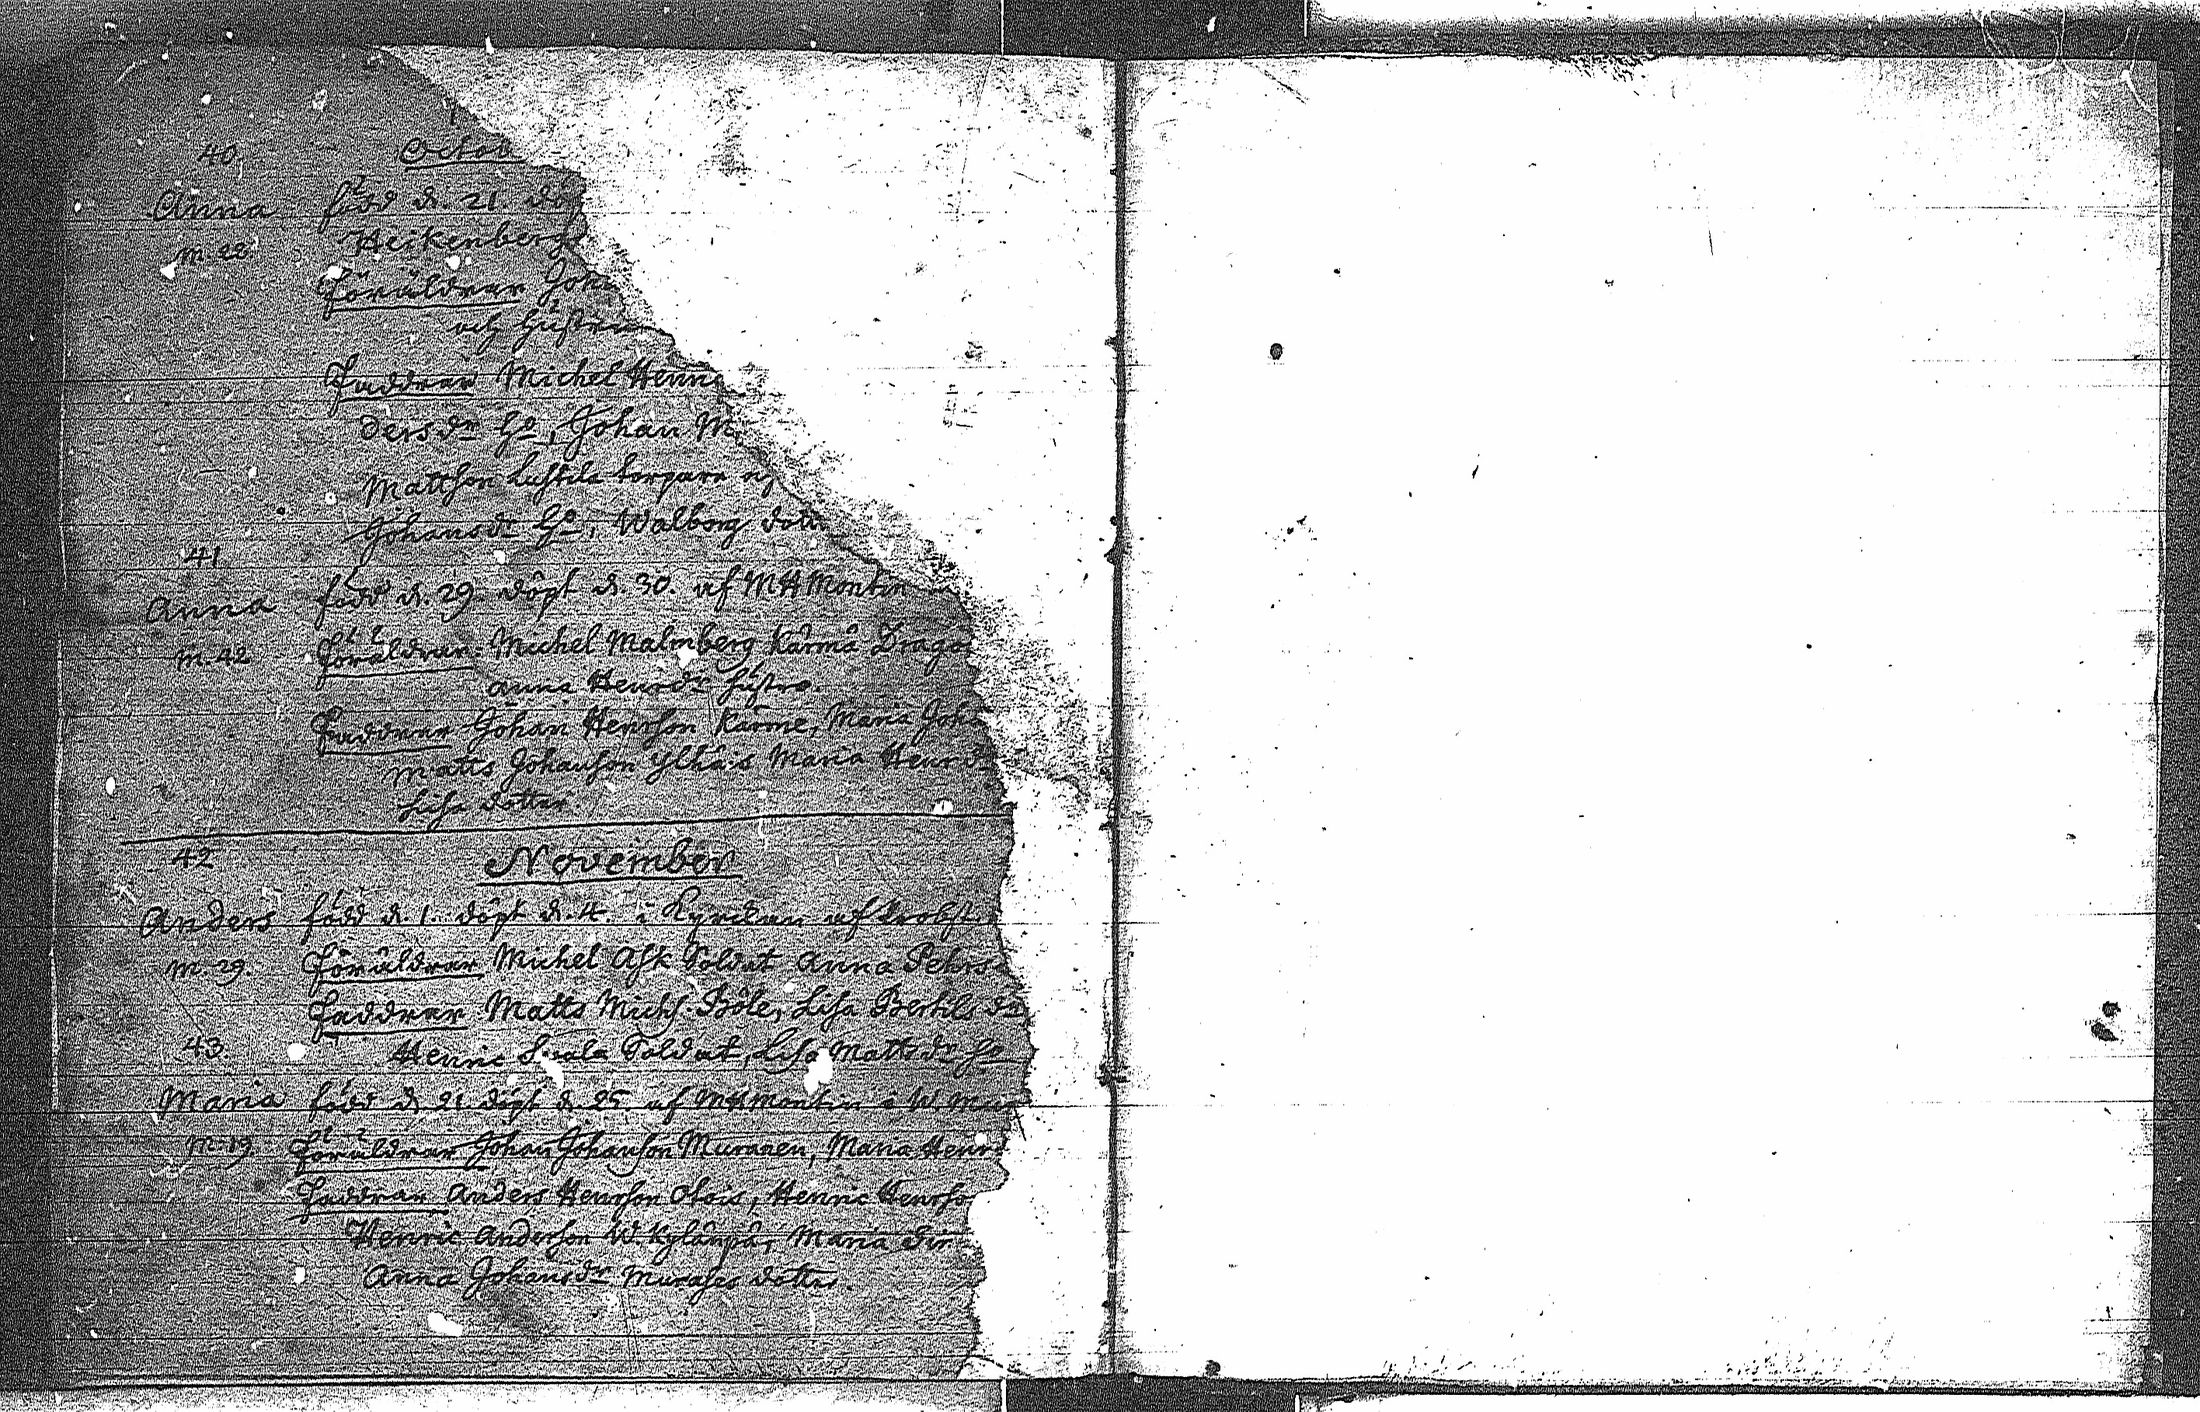 40. Octob
Anna född d. 21. döp
m. 22 Heikenberg
Föräldrar Joh
och hustru
Faddrar Michel Henric
dersdr ho, Johan M
Mattson Lahtela torpare och
Johansdr ho, Walborg dott
41
Anna född d. 29. döpt d. 30. af MH Montin
m. 42 Föräldrar. Michel Malmberg Kärmä Drago
Anna Henrsdr hustro.
Faddrar Johan Henrson Kärme, Maria Joha
Matts Johanson Maria Henrsdr
Lisa dotter.
42 November
Anders född d. 1. döpt d. 4 i Kyrckan af Probst
m. 29. Föräldrar Michel Ask Soldat Anna Pehrs
Faddrar Matts Michs. Böle, Lisa Bertilsdr
43. Henric Soldat, Lisa Mattsdr ho
Maria född d 21 döpt d. 25. af MH Montin i W. M
m. 19. Föräldrar Johan Johanson Muranen, Maria Henrs
Faddrar Anders Henrson Henric Henrso
Henric Anderson W. Kylänpä, Maria
Anna Johansdr dotter.